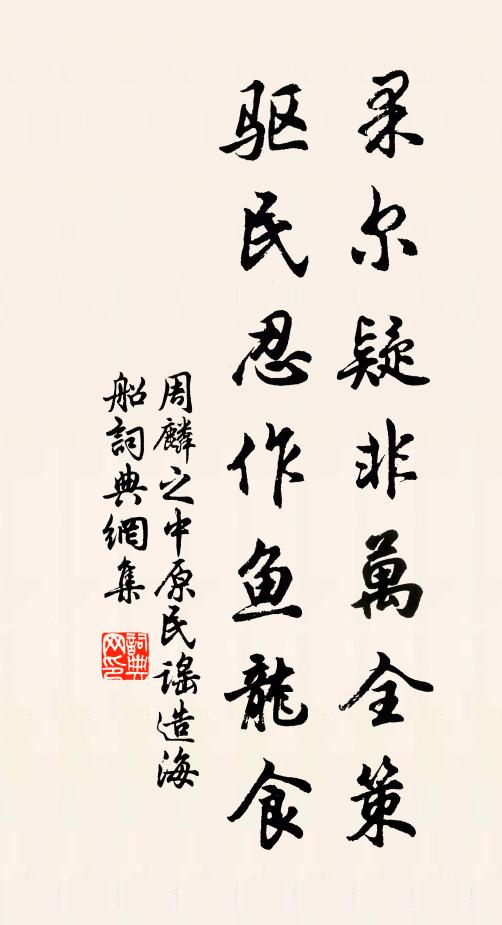 果尔疑非萬全策
驱民忍作鱼龍食
周麟之中原民謠造海
船詞典網集
詞典
网印